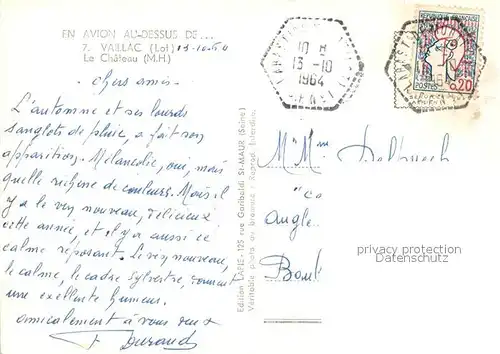 EN AVION AU-DESSUS DE...
7. VAILLAC (Lot) 13-10-64
Le Château (M.H.)
chers amis.
L'automne et ses lourds
sanglots de pluie, a fait son
apparition. Mélancolie, oui, mais
quelle richesse de couleurs. Mais il
y a le vin nouveau, délicieux
cette année, et il y a aussi ce
calme reposant. Le vin nouveau,
le calme, le cadre sylvestre, donnent
une excellente humeur.
amicalement à vous deux
Durand
Edition LAPIE-125 rue Garibaldi St-MAUR (Seine)
Véritable photo au bromure - Reprod. Interdite
10 H
13 -10
1964
REPUBLIQUE FRANÇAISE
0,20
POSTES
M. Mme Delbruch
"Co
Angle
Boul
privacy protection
Datenschutz